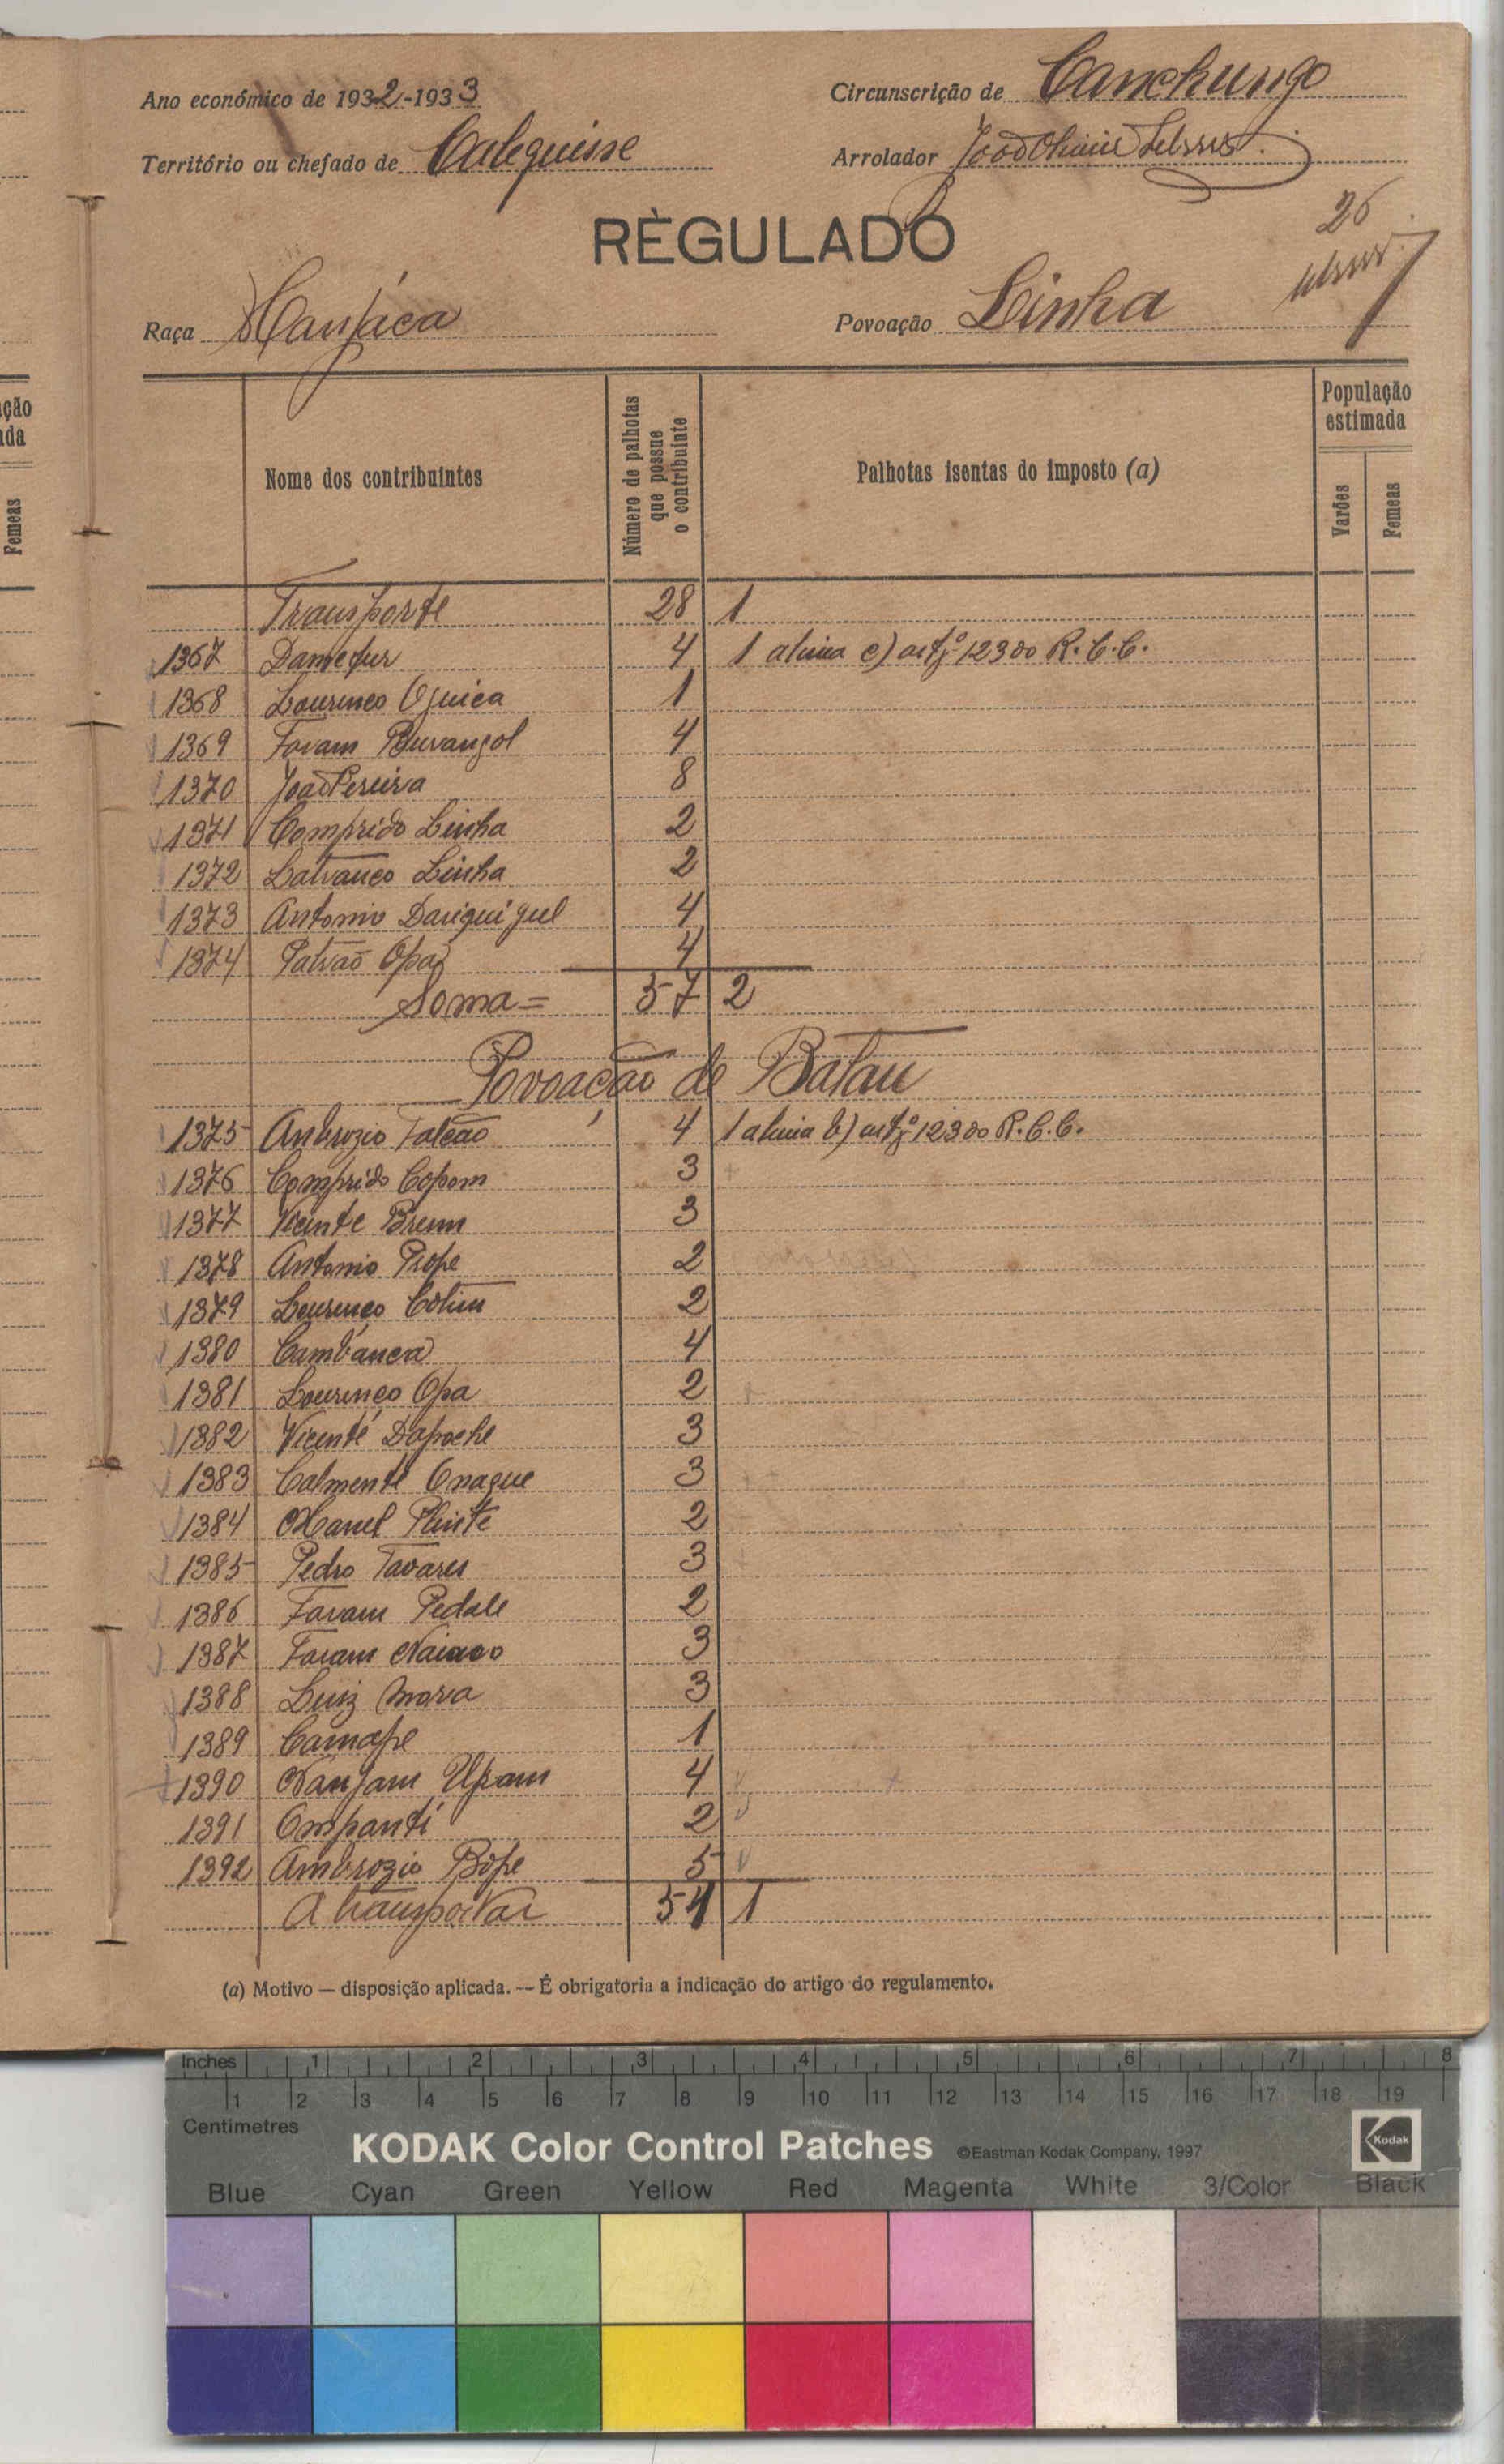 Ano económico de 1932-1933
Circunscrição de Canchungo
Território ou chefado de Calequisse
Arrolador João
26
RÈGULADO
Raça Manjáca
Povoação Linha
Nome dos contribuintes
Número de palhotas que possue o contribuinte
Palhotas isentas do imposto (a)
População estimada
Varões
Femeas
Transporte 28 1
1367 4 1 alinea c) artº 123 do R.C.C.
1368 Lourenço 1
1369 4
1370 João Pereira 8
1371 Comprido Linha 2
1372 Linha 2
1373 Antonio 4
1374 Opa 4
Soma= 57 2
Povoação de Batau
1375 Ambrozio Falcão 4 1 alinea b) artº 123 do R.C.C.
1376 Comprido Copom 3
1377 Vicente 3
1378 Antonio 2
1379 Lourenço 2
1380 Cambánca 4
1381 Lourenço Opa 2
1382 Vicente Dapoche 3
1383 Calmente 3
1384 Manel 2
1385 Pedro Tavares 3
1386 Pedale 2
1387 3
1388 Luiz 3
1389 Camape 1
1390 4
1391 Ompanti 2
1392 Ambrozio 5
A transportar 54 1
(a) Motivo — disposição aplicada. — É obrigatoria a indicação do artigo do regulamento.
ção
da
Femeas
Inches 1 2 3 4 5 6 7 8
1 2 3 4 5 6 7 8 9 10 11 12 13 14 15 16 17 18 19
Centimetres
KODAK Color Control Patches ©Eastman Kodak Company, 1997
Kodak
Blue Cyan Green Yellow Red Magenta White 3/Color Black